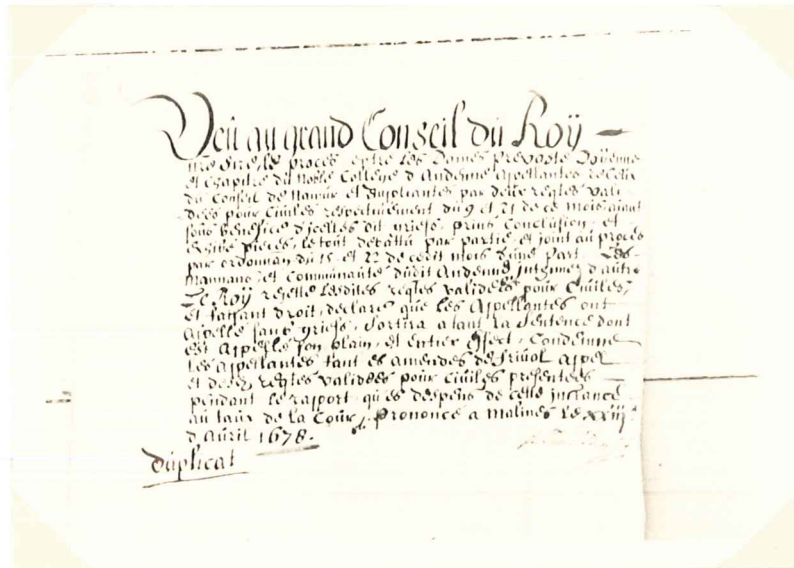 Veû au grand Conseil du Roÿ
nre sire, le proces entre les Dames prevoste Doÿenne
et Chapitre du Noble College d'Andenne Appellantes
du Conseil de Namur et Suppliantes par deux reqtes vali
dées pour Civiles respectivement du 9 et 21 de ce mois aiant
soub benefice d'jcelles dit griefs, prins Conclusion, et
exhibé pieces, le tout debattu par partie, et joint au proces
par ordonnan du 15 et 22 de cedit mois d'une part, Les
Mannans, et Communauté dudit Andenne jnthimez d'autre
Le Roÿ rejette lesdites reqtes validées pour Civiles,
et faisant droit, declare que les Appellantes ont
Appellé sans griefs, Sortira atant la Sentence dont
est Appellé son plain, et entier effect, Condemne
Les Appellantes tant es amendes de frivol Appel
et desd reqtes validées pour Civiles presentées
pendant le rapport, qu'es despens de cette instance
au taux de la Cour, Prononcé a Malines le xxiij
d'Avril 1678.
duplicat